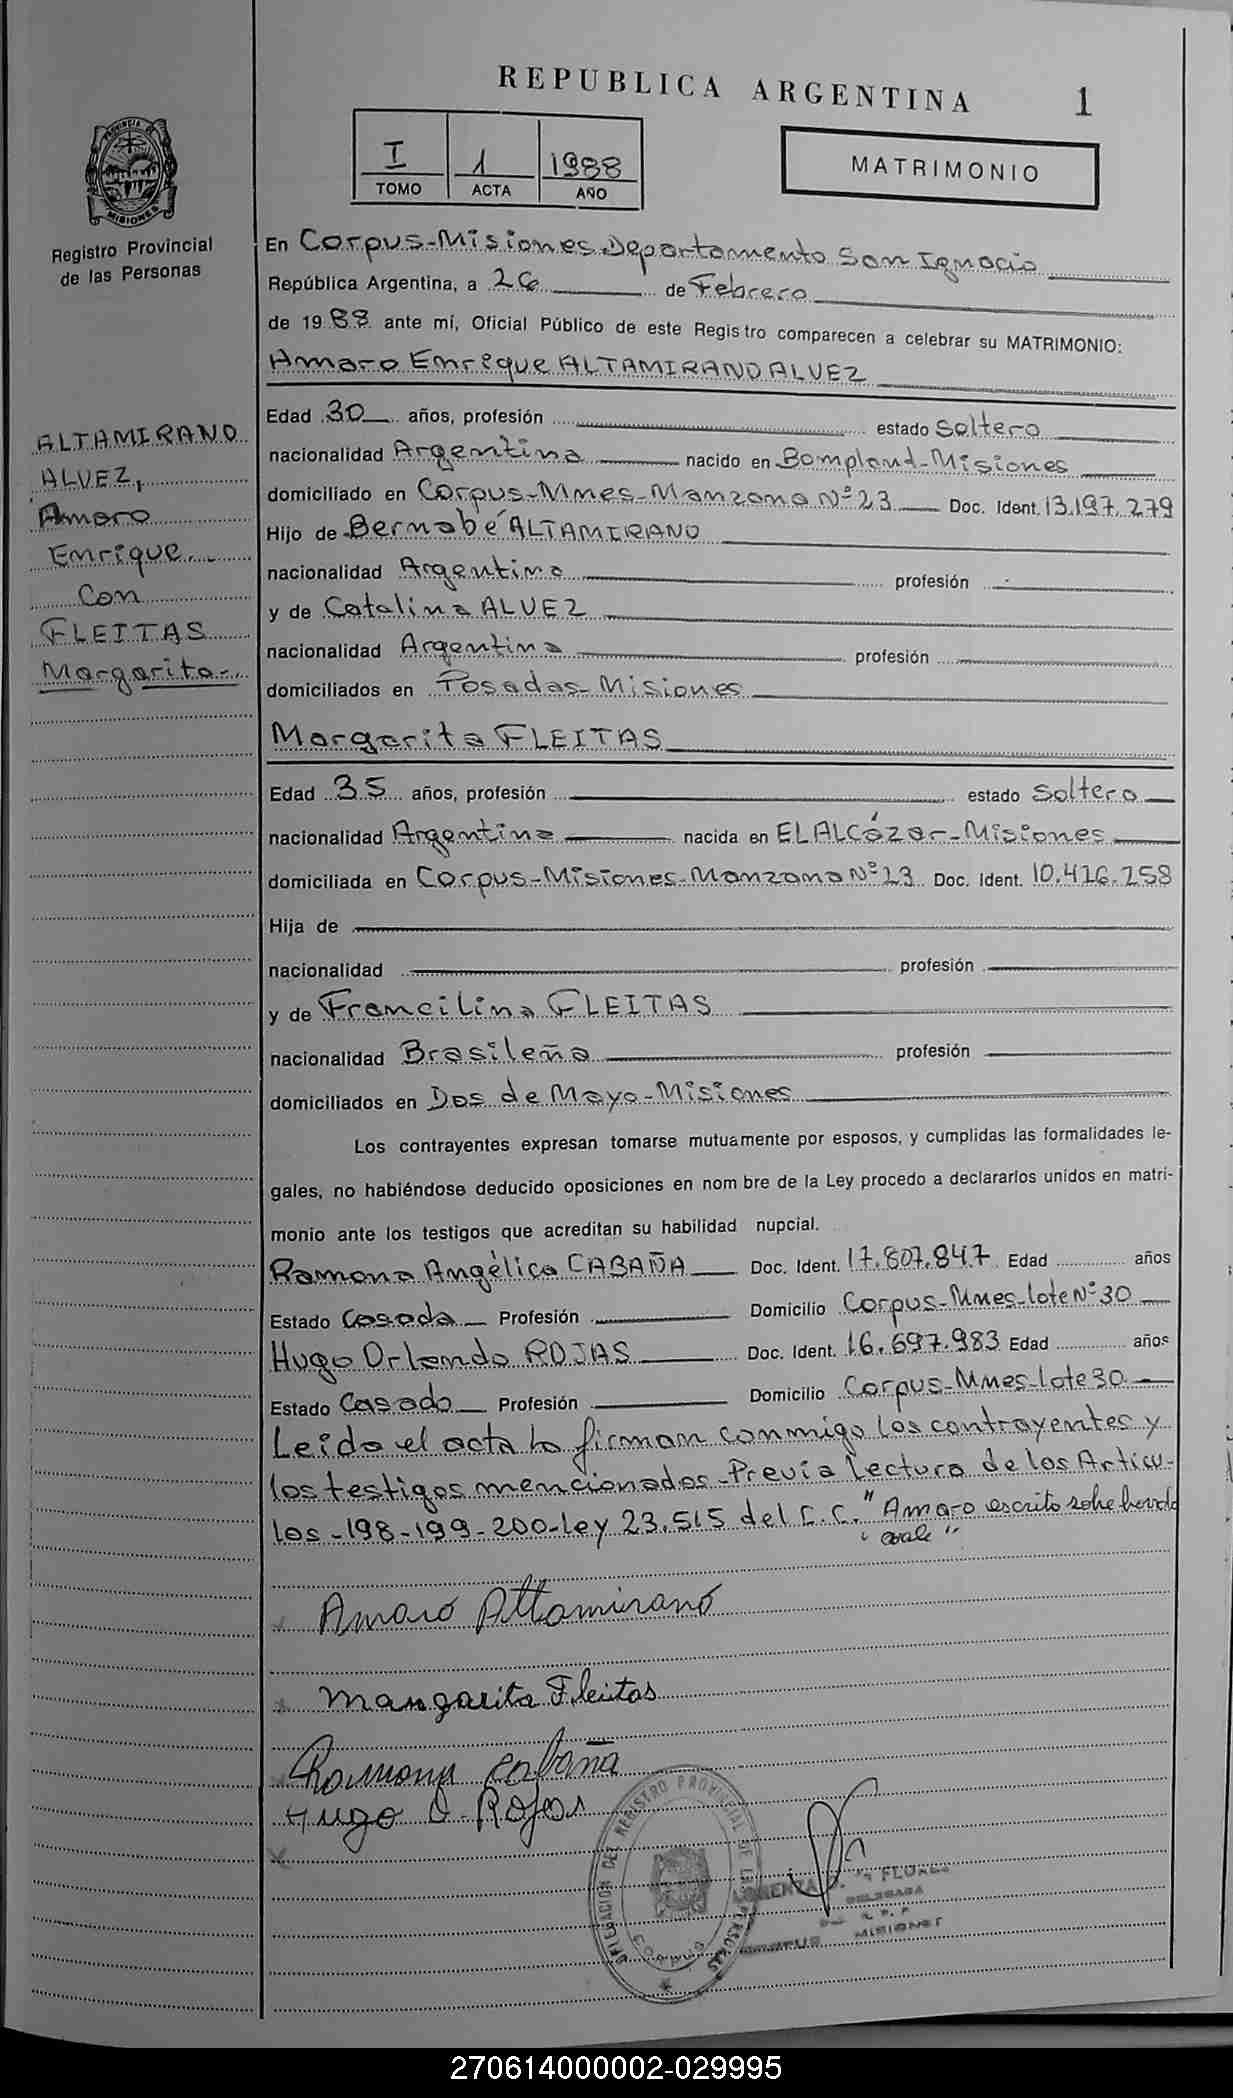 REPUBLICA ARGENTINA 1
I 1 1988
TOMO ACTA AÑO
MATRIMONIO
PROVINCIA DE
MISIONES
Registro Provincial
de las Personas
En Corpus-Misiones Departamento San Ignacio
República Argentina, a 26 de Febrero
de 1988 ante mí, Oficial Público de este Registro comparecen a celebrar su MATRIMONIO:
Amaro Enrique ALTAMIRANO ALVEZ
Edad 30 años, profesión estado Soltero
nacionalidad Argentina nacido en Bompland-Misiones
domiciliado en Corpus-Mnes-Manzana Nº 23 Doc. Ident. 13.197.279
Hijo de Bernabé ALTAMIRANO
nacionalidad Argentina profesión
y de Catalina ALVEZ
nacionalidad Argentina profesión
domiciliados en Posadas-Misiones
ALTAMIRANO
ALVEZ,
Amaro
Enrique
Con
FLEITAS
Margarita-
Margarita FLEITAS
Edad 35 años, profesión estado Soltera
nacionalidad Argentina nacida en EL ALCázar-Misiones
domiciliada en Corpus-Misiones-Manzana Nº 23 Doc. Ident. 10.416.258
Hija de
nacionalidad profesión
y de Francilina FLEITAS
nacionalidad Brasileña profesión
domiciliados en Dos de Mayo-Misiones
Los contrayentes expresan tomarse mutuamente por esposos, y cumplidas las formalidades le-
gales, no habiéndose deducido oposiciones en nom bre de la Ley procedo a declararlos unidos en matri-
monio ante los testigos que acreditan su habilidad nupcial.
Ramona Angélica CABAÑA Doc. Ident. 17.807.847 Edad años
Estado Casada Profesión Domicilio Corpus-Mnes-lote Nº 30
Hugo Orlando ROJAS Doc. Ident. 16.697.983 Edad años
Estado Casado Profesión Domicilio Corpus-Mnes-lote 30
Leida el acta la firman conmigo los contrayentes y
los testigos mencionados-Previa lectura de los Artícu-
los-198-199-200-ley 23.515 del C.C. "Amaro escrito sobre
"vale"
Amaro Altamirano
Margarita Fleitas
Ramona Cabaña
Hugo O. Rojas
DELEGACION DEL REGISTRO PROVINCIAL DE LAS PERSONAS
CORPUS
FLORES
DELEGADA
R. P. P.
CORPUS MISIONES
270614000002-029995